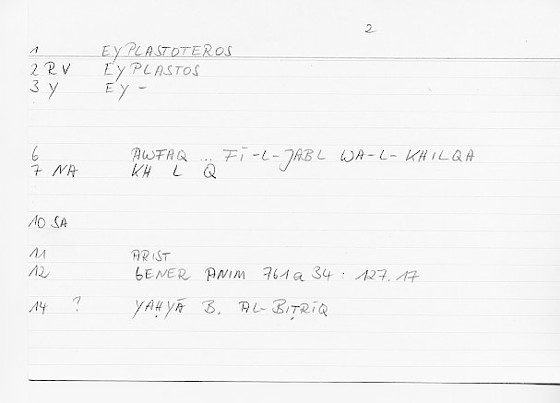 2
1 EYPLASTOTEROS
2 RV EYPLASTOS
3 Y EY -
6 AWFAQ ... FĪ-L-JABL WA-L-KHILQA
7 NA KH L Q
10 SA
11 ARIST
12 GENER ANIM 761a 34 : 127.17
14 ? YAḤYĀ B. AL-BIṬRĪQ